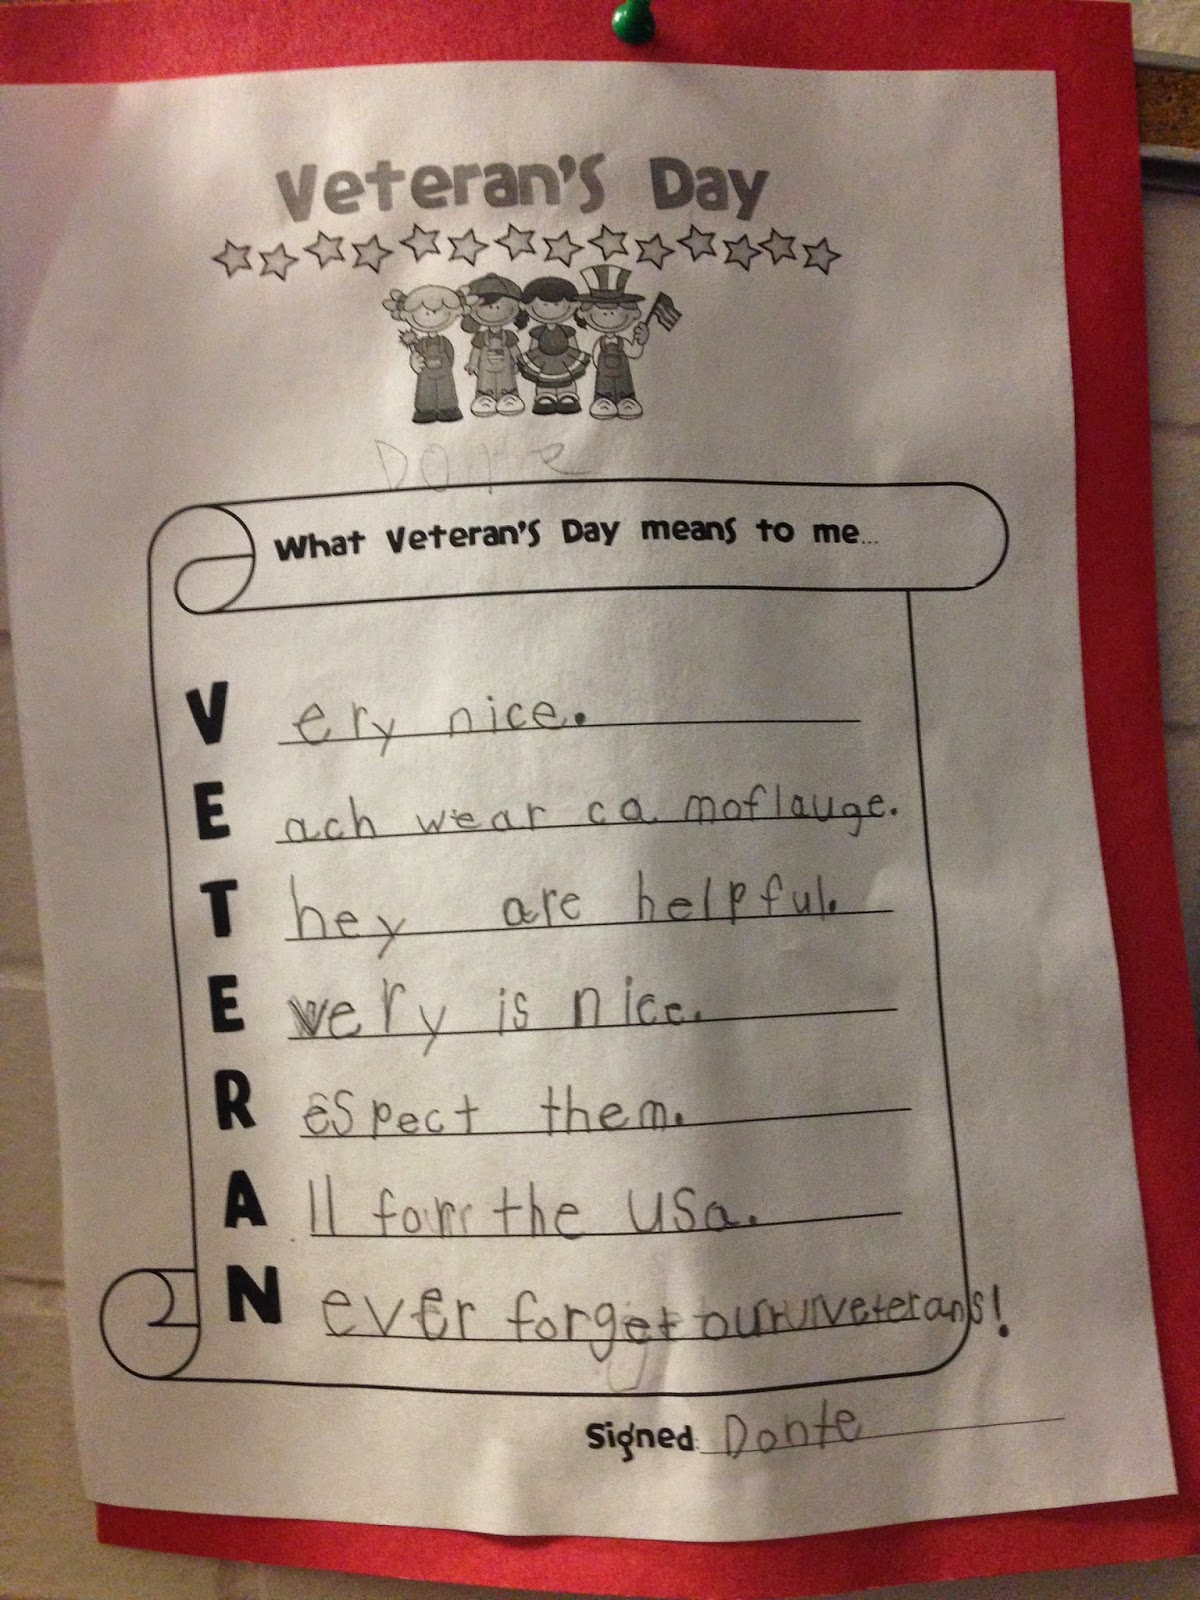 Veteran's Day
Donte
What Veteran's Day means to me...
V ery nice.
E ach wear ca moflauge.
T hey are helpful.
E very is nice.
R espect them.
A ll for the USa.
N ever forget our veterans!
Signed: Donte